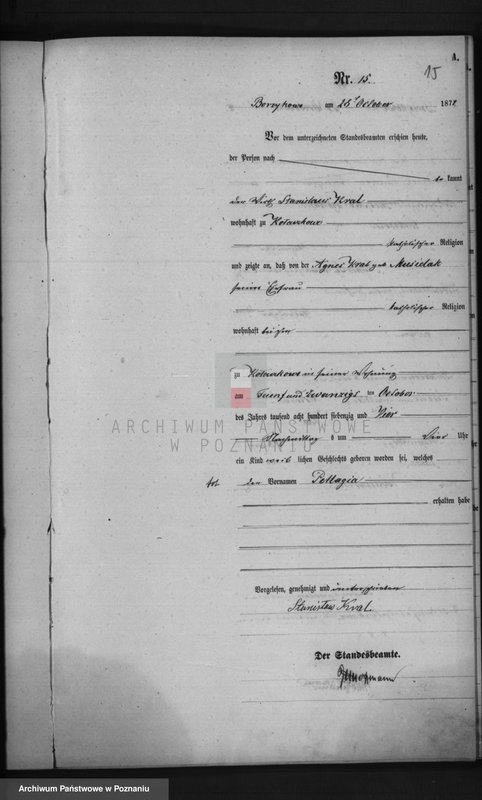 A.
15
Nr. 15.
am 25t October 187
Vor dem unterzeichneten Standesbeamten erschien heute,
der Person nach
kannt
der Wirth Stanislaus Kral
wohnhaft zu
katholischer Religion
und zeigte an, daß von der Agnes Kral geb
seine Ehefrau
katholischer Religion
wohnhaft bei ihm
zu in seiner Wohnung
am Fuenf und zwanzigs ten October
des Jahres tausend acht hundert siebenzig und Vier
Nachmittag s um Vier Uhr
ein Kind weib lichen Geschlechts geboren worden sei, welches
den Vornamen Pellagia
erhalten habe
Vorgelesen, genehmigt und unterschrieben
Stanislaw Kral
Der Standesbeamte.
ARCHIWUM PAŃSTWOWE
W POZNANIU
Archiwum Państwowe w Poznaniu